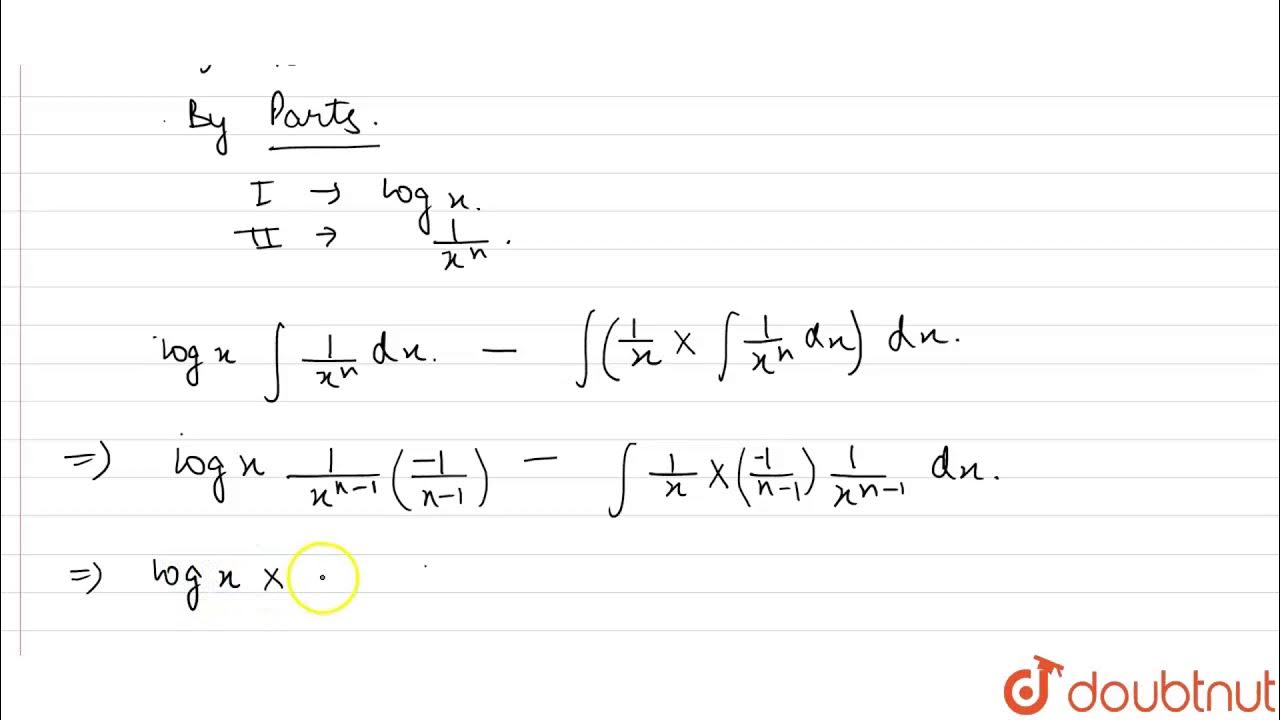 By Parts.
I → log x.
II → 1/xⁿ.
log x ∫ 1/xⁿ dx. − ∫(1/x × ∫ 1/xⁿ dx) dx.
=> log x 1/xⁿ⁻¹ (−1/n−1) − ∫ 1/x × (−1/n−1) 1/xⁿ⁻¹ dx.
=> log x ×
doubtnut